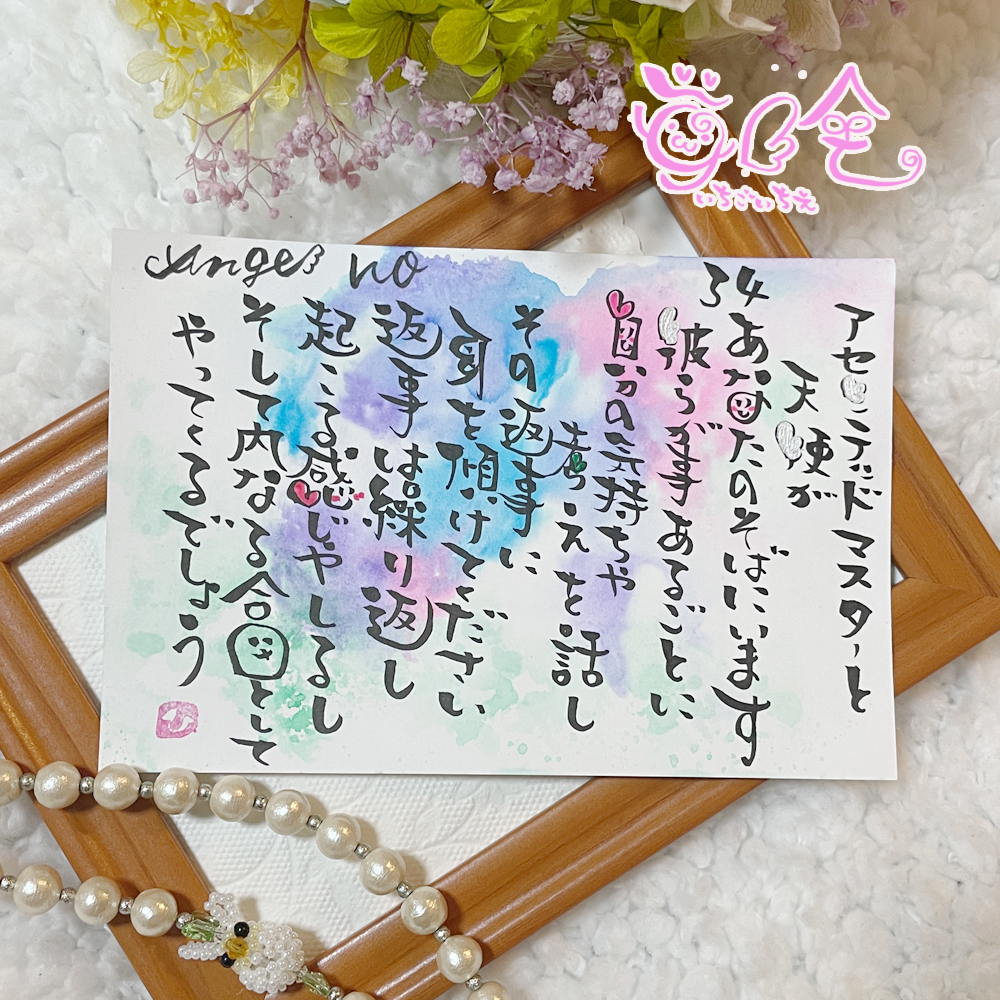 Angel no
34
アセンテッドマスターと
天使が
あなたのそばにいます
彼らが事あるごとに
自分の気持ちや
考えを話し
その返事に
耳を傾けてください
返事は繰り返し
起こる感じやしるし
そして内なる合図として
やってくるでしょう
いちごいちえ